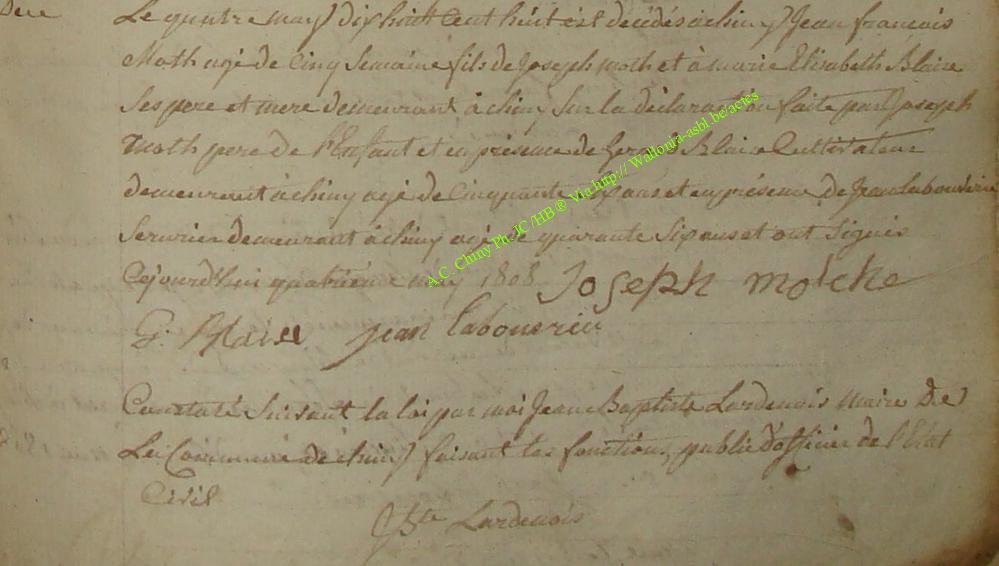 Le quatre may Dix huit Cent huit est decédés à chiny Jean francois
Moth agé de Cinq Semaine fils de Joseph moth et à marie Elisabeth Blaise
Ses pere et mere demeurant à chiny Sur la déclaration faite par Joseph
Moth pere de l'Enfant et en présence de Gerard Blaise Cultivateur
demeurant à chiny agé de Cinquante ans et en présence de Jean
Serurier demeurant à chiny agé de quarante Six ans et ont Signés
Cejourd'hui quatrième may 1808 Joseph motche
G. Blaise jean
Constaté Suivant la loi par moi Jean Baptiste Lardenois Maire De
La Commune de chiny faisant les fonctions public d'officier de l'Etat
Civil
Lardenois
A.C. Chiny Ph. JC /HB ® Via http:// Wallonia-asbl.be/actes